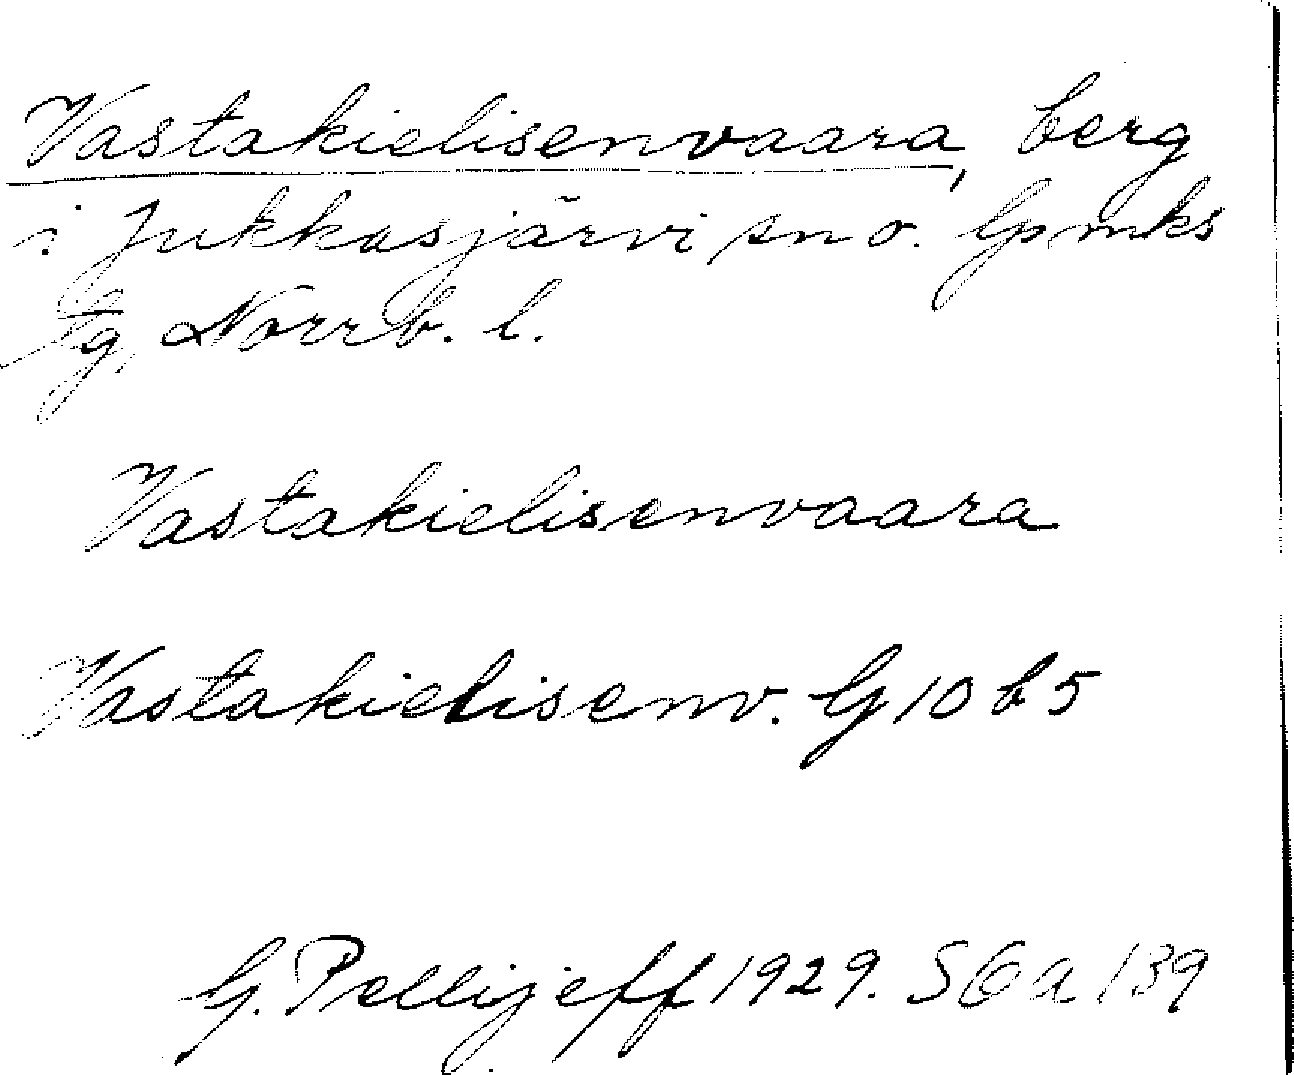 Vastakielisenvaara, berg
i Jukkasjärvi sn o. Gpmks
tg, Norrb. l.
Vastakielisenvaara
Vastakielisenv. G 10 b 5
G. Pellijeff 1929. S G a 139